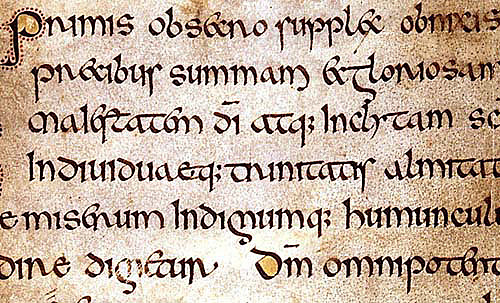 Primis obsecro supplex obnixis
precibus summam et gloriosam
maiestatem dī atq; inclytam
indiuiduaeq; trinitatis almitat
e miserum indignumq; humuncul
dine dignetur Dm̄ omnipotent